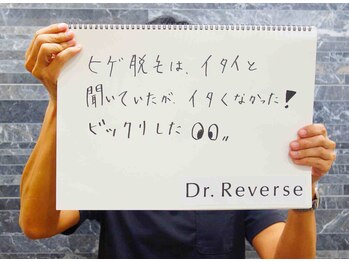 ヒゲ脱毛は、イタイと
聞いていたが、イタくなかった!
ビックリした👀„
Dr. Reverse